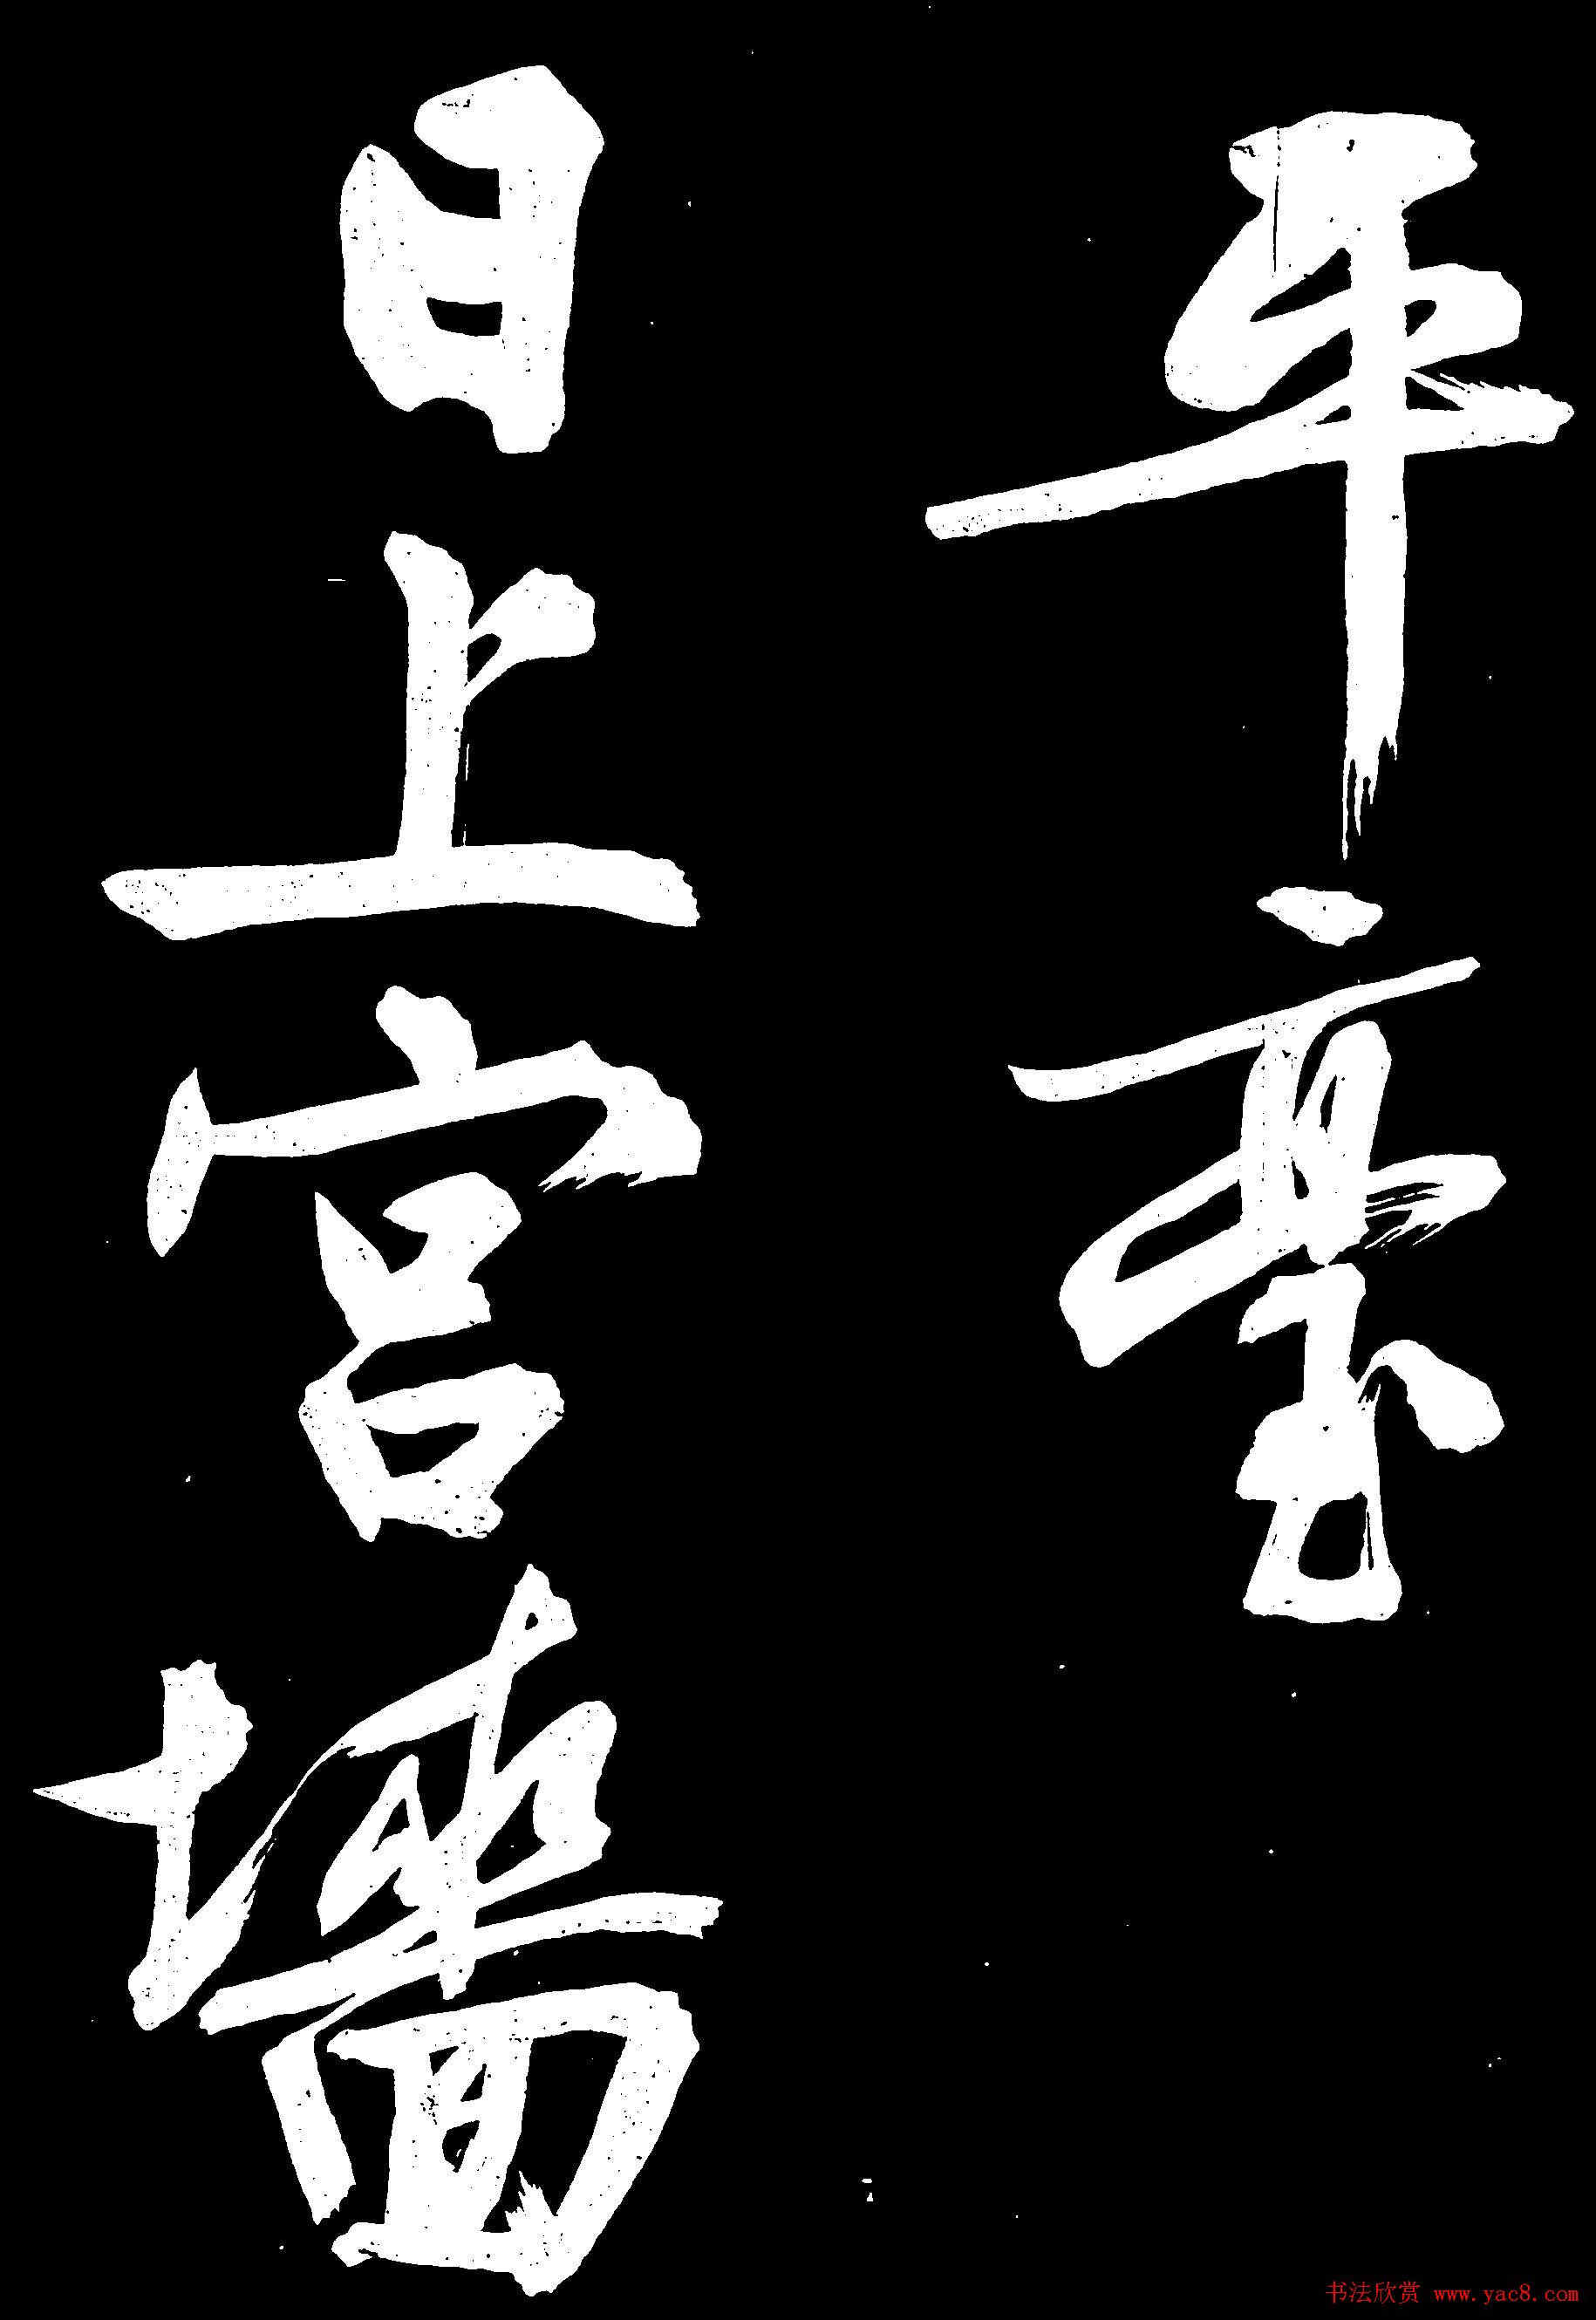 平臺
日上宫墻
书法欣赏 www.yac8.com